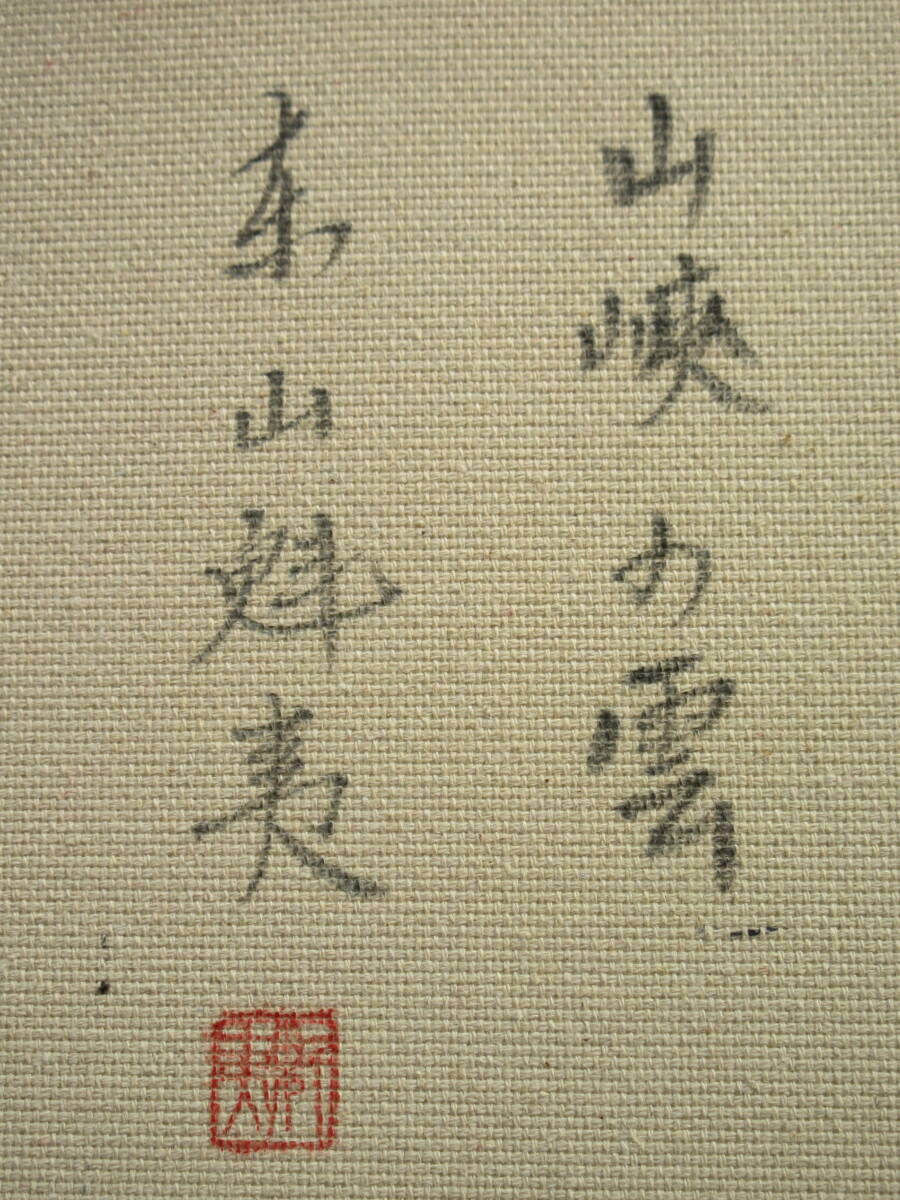 山峽の雲
東山魁夷